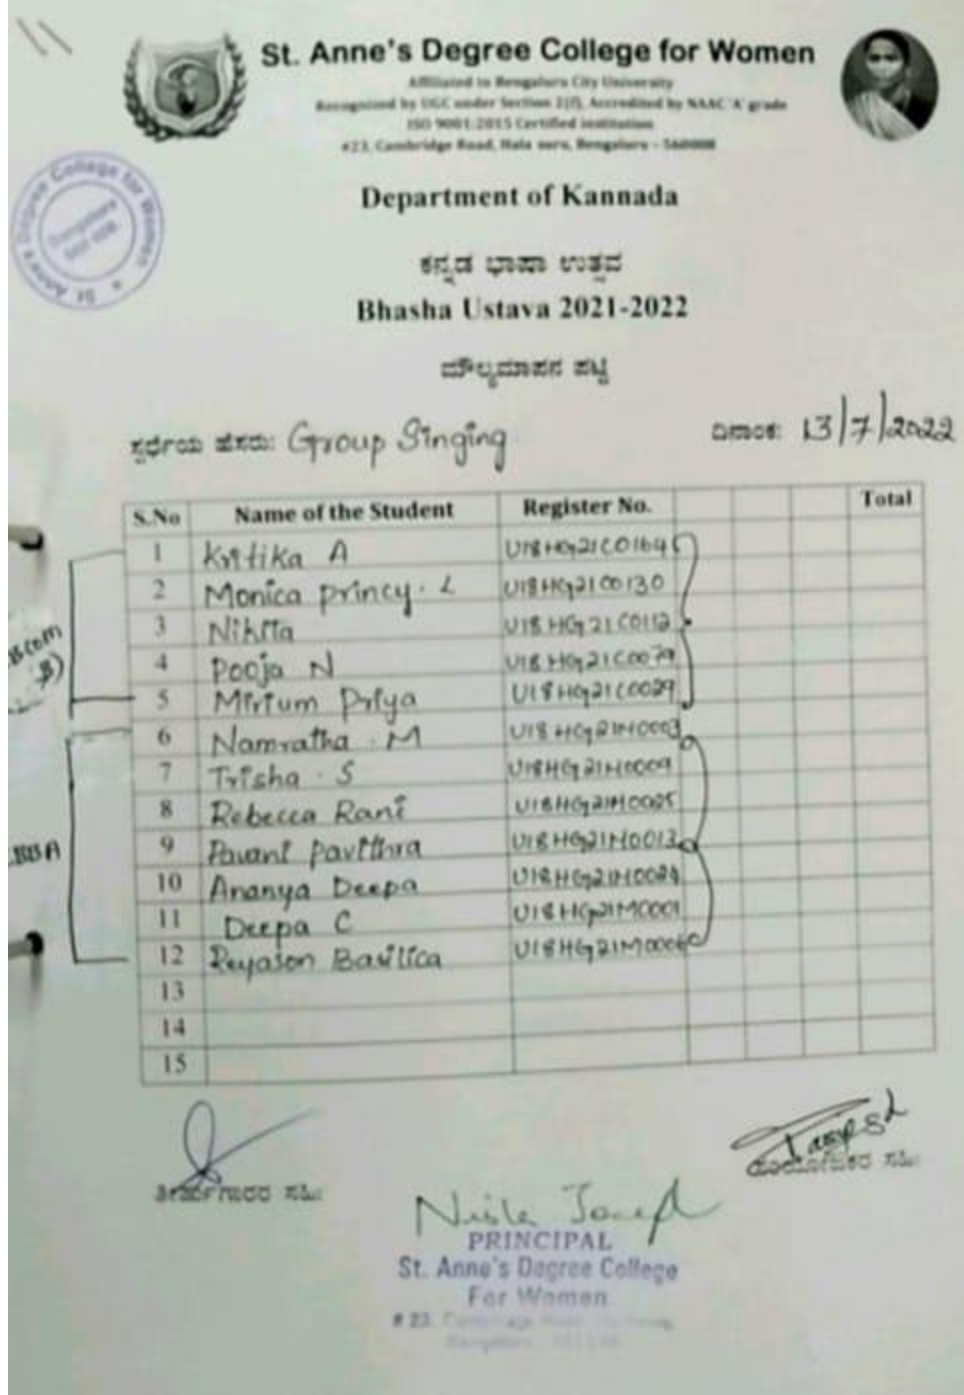 St. Anne's Degree College for Women
Affiliated to Bengaluru City University
Recognized by UGC under Section 2(f), Accredited by NAAC 'A' grade
ISO 9001:2015 Certified institution
#23, Cambridge Road, Hala suru, Bengaluru - 560008
St Anne's Degree College for Women
Department of Kannada
ಕನ್ನಡ ಭಾಷಾ ಉತ್ಸವ
Bhasha Ustava 2021-2022
ಮೌಲ್ಯಮಾಪನ ಪಟ್ಟಿ
ಸ್ಪರ್ಧೆಯ ಹೆಸರು: Group Singing ದಿನಾಂಕ: 13/7/2022
S.No Name of the Student Register No. Total
1 Kritika A U18HG21C0164
2 Monica princy. L U18HG21C0130
3 Nikita U18HG21C0112
4 Pooja N U18HG21C0079
5 Mirium Priya U18HG21C0029
6 Namratha . M U18HG21M0003
7 Trisha . S U18HG21M0009
8 Rebecca Rani U18HG21M0025
9 Pavani Pavithra U18HG21M0013
10 Ananya Deepa U18HG21M0024
11 Deepa C U18HG21M0001
12 Reyason Basilica U18HG21M0006
13
14
15
Bcom
B)
BBA
ತೀರ್ಪುಗಾರರ ಸಹಿ: ಸಂಯೋಜಕರ ಸಹಿ:
PRINCIPAL
St. Anne's Degree College
For Women
# 23,